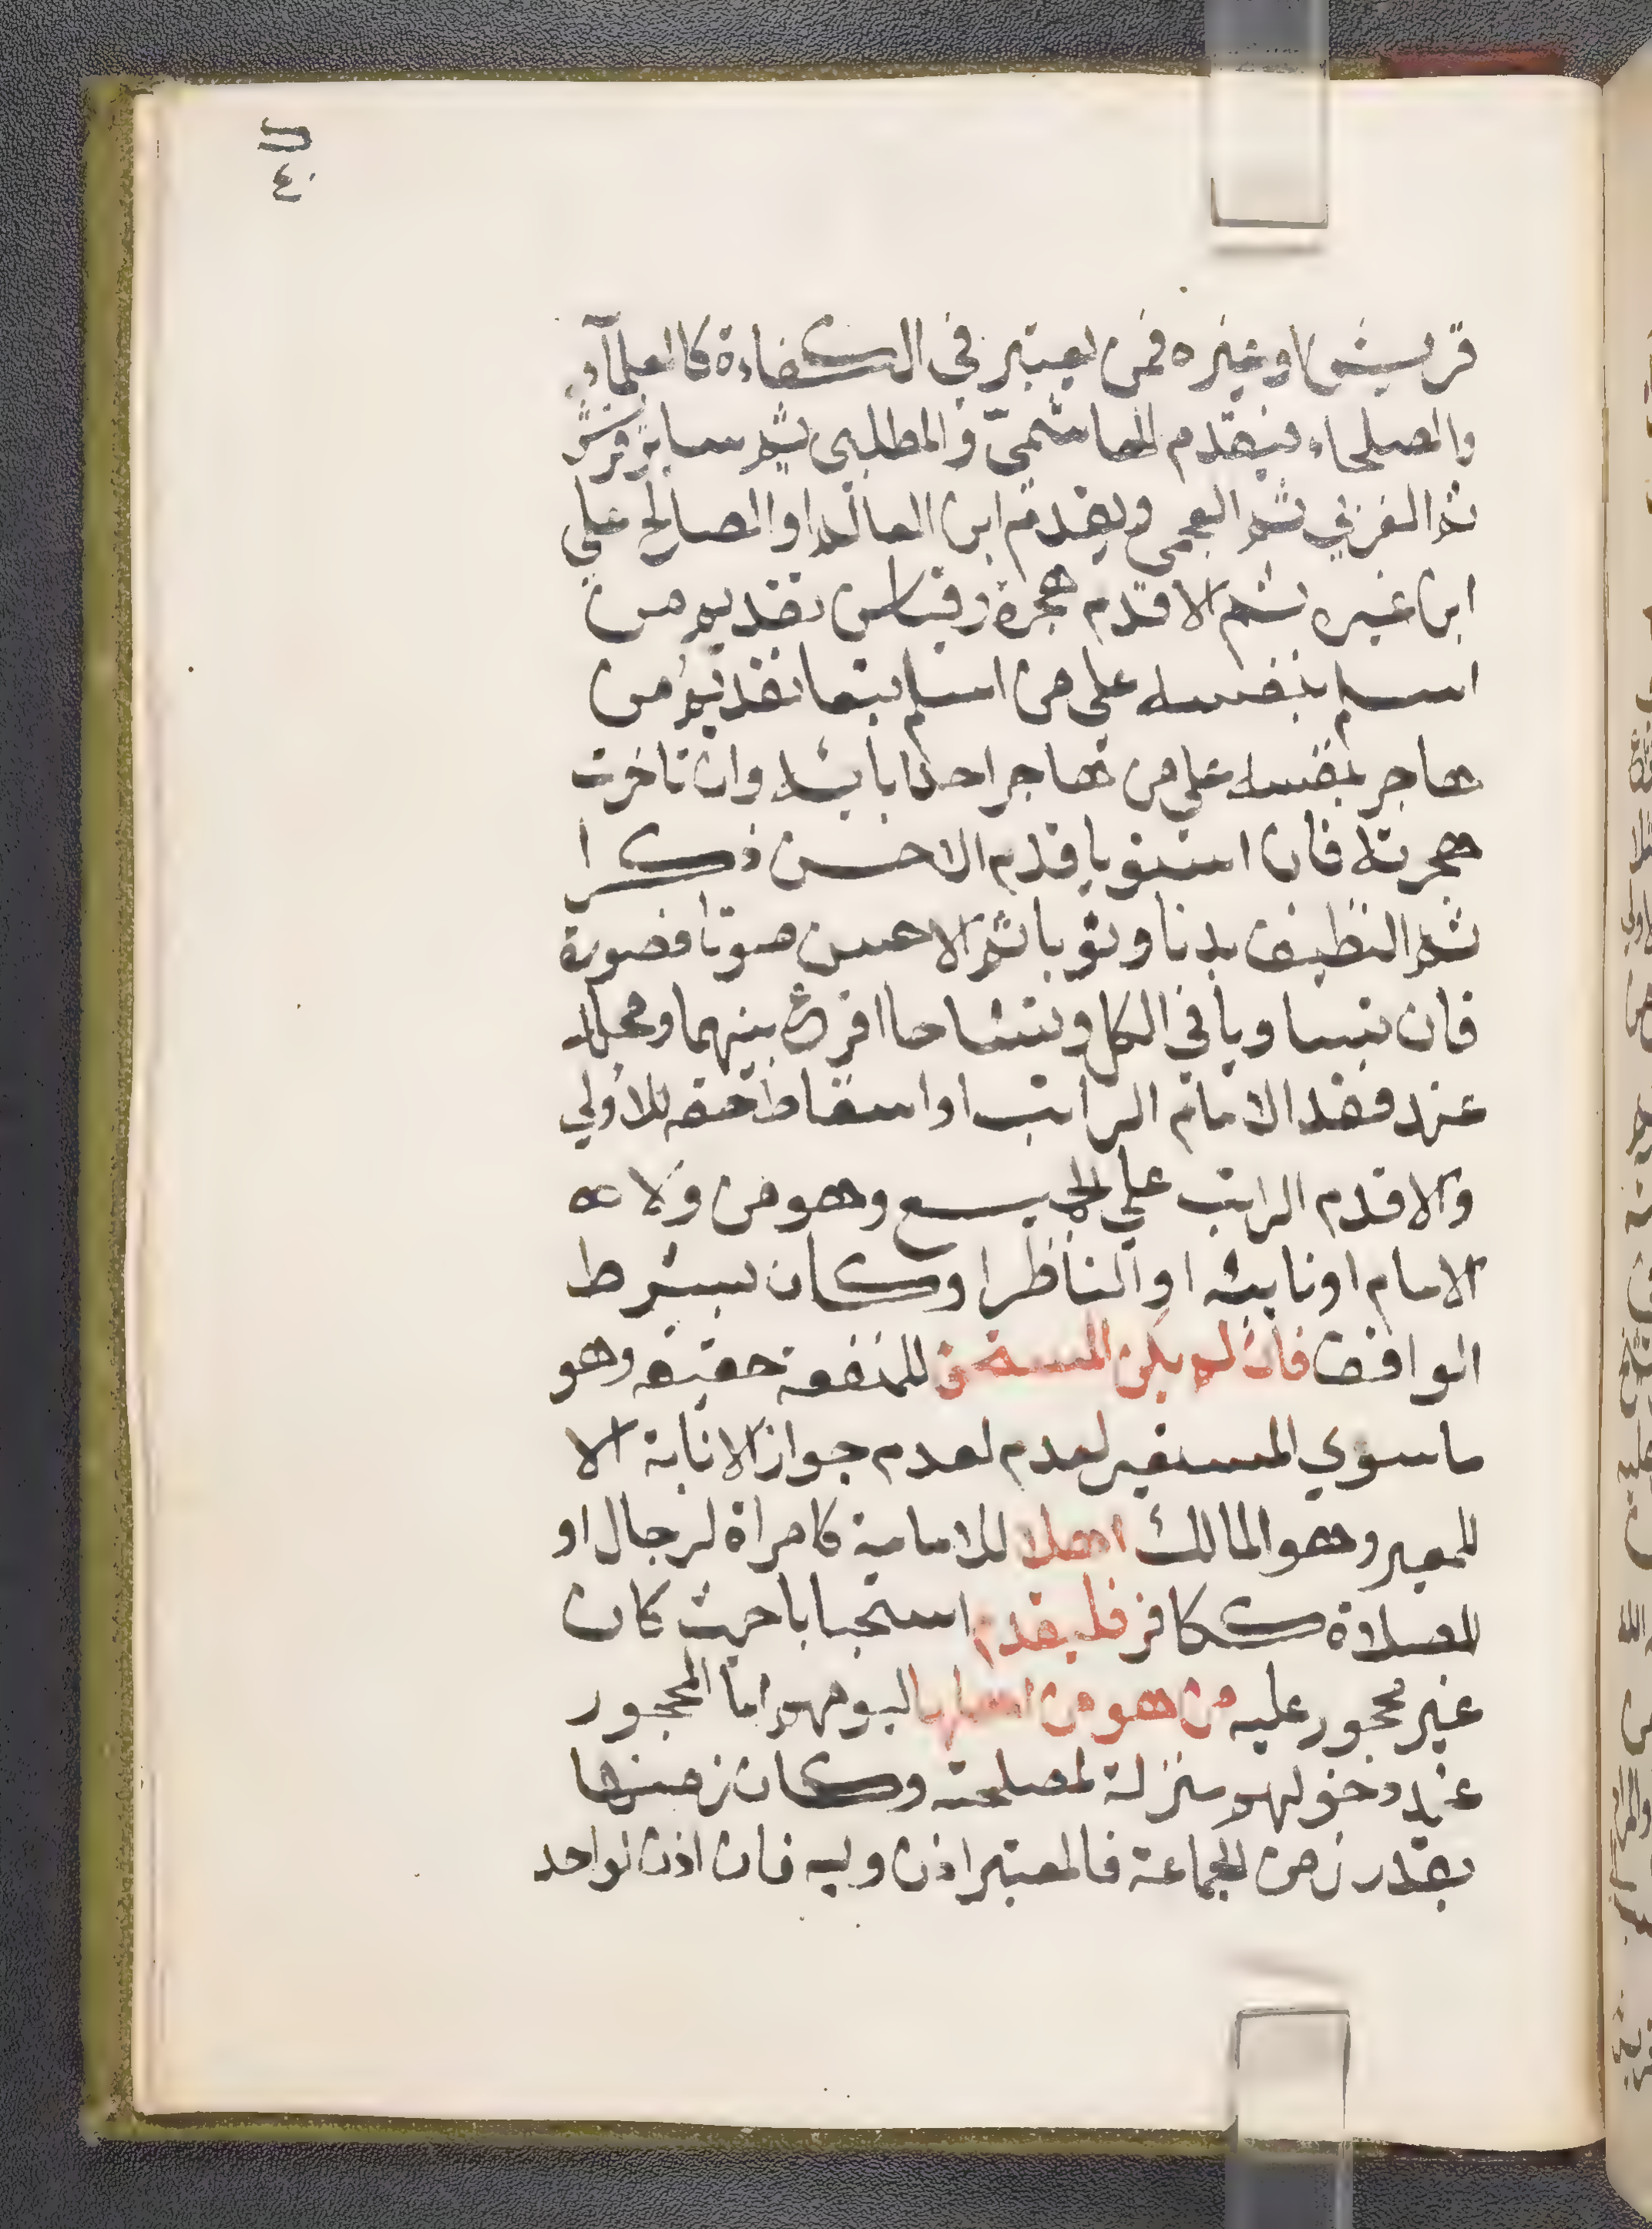 ٤٠
قريش او غيره فمن يعتبر في الكفاءة كالعلماء و
والصلحاء فيقدم الهاشمي والمطلبي ثم سائر قريش
ثم العربي ثم العجمي ويقدم ابن العالم او الصالح علي
ابن غيره ثم الاقدم هجرة وقياس تقديم من
اسلم بنفسه علي من اسلم تبعا تقديم من
هاجر بنفسه علي من هاجر احد ابايه وان تاخرت
هجرته فان استويا قدم الاحسن ذكرا
ثم النظيف بدنا وثوبا ثم الاحسن صوتا فصورة
فان تساويا في الكل وتشاحا اقرع بينهما ومحله
عند فقد الامام الراتب او اسقاط حقه للاولي
والا قدم الراتب علي الجميع وهو من ولاه
الامام او نايبه او الناظر او كان بشرط
الواقف فان لم يكن المستحق للمنفعة حقيقه وهو
ما سوي المستعير لعدم لعدم جواز الانابة الا
للمعير وهو المالك اهلا للامامة كامراة لرجال او
للصلاة ككافر فليقدم استحبابا حيث كان
غير محجور عليه من هو من اهلها ليومهم اما المحجور
عند دخولهم منزله لمصلحته وكان زمنها
بقدر زمن الجماعة فالمعتبر اذن وليه فان اذن لواحد